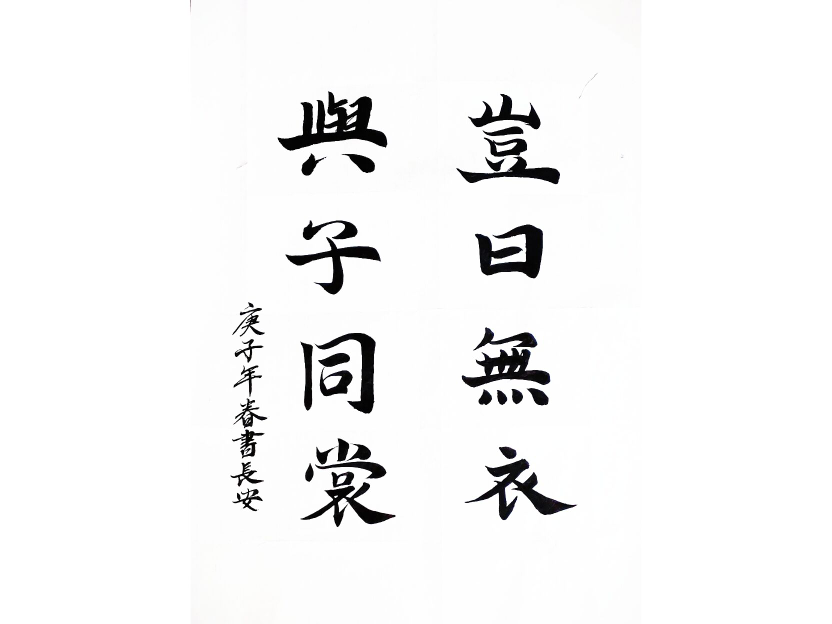 豈曰無衣
與子同裳
庚子年春書長安